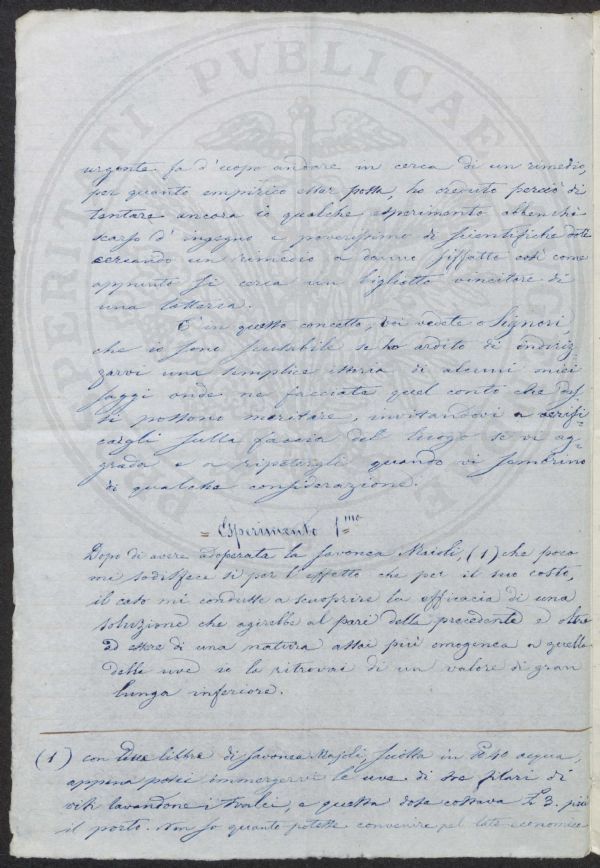 urgente fa d'uopo andare in cerca di un rimedio,
per quanto empirico esser possa, ho creduto perciò di
tentare ancora io qualche esperimento abbenchè
scarso d'ingegno e poverissimo di scientifiche doti
cercando un rimedio a danno siffatto così come
appunto si cerca un biglietto vincitore di
una lotteria.
È in questo concetto, voi vedete o Signori,
che io sono scusabile se ho ardito di indiriz-
zarvi una semplice istoria di alcuni miei
saggi onde ne facciate quel conto che
si possono meritare, invitandovi a verifi-
cargli sulla faccia del luogo se vi ag-
grada e a ripetergli quando vi sembrino
di qualche considerazione.
= Esperimento 1mo =
Dopo di avere adoperata la Savonea Maioli, (1) che poco
mi sodisfece sì per l'effetto che per il suo costo,
il caso mi condusse a scuoprire la efficacia di una
soluzione che agirebbe al pari della precedente e oltre
ad essere di una natura assai più omogenea a quella
delle uve io la ritrovai di un valore di gran
lunga inferiore.
(1) con due libbre di Savonea Majoli, sciolta in acqua,
appena potei immergervi le uve di tre filari di
viti lavandone i tralci, e questa dose costava £ 3. più
il porto. Non so quanto potesse convenire pel lato economico
PROSPERITATI PVBLICAE